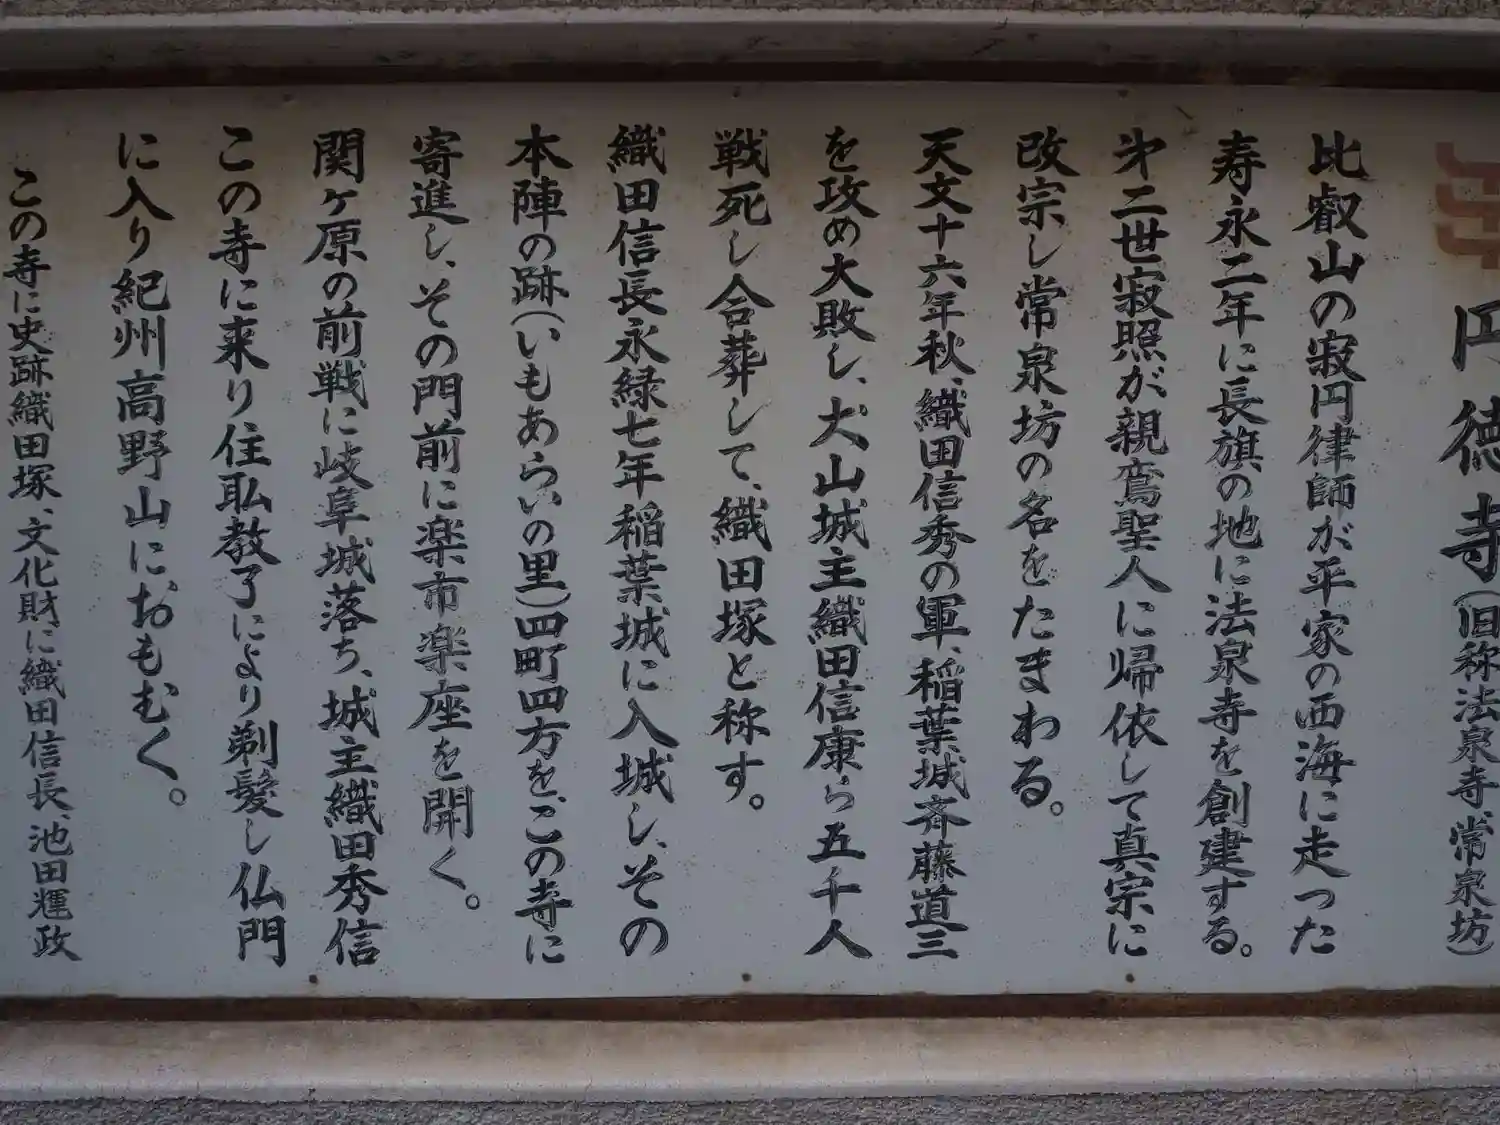 円徳寺(旧称法泉寺、常泉坊)
比叡山の寂円律師が平家の西海に走った
寿永二年に長旗の地に法泉寺を創建する。
㐧二世寂照が親鸞聖人に帰依して真宗に
改宗し常泉坊の名をたまわる。
天文十六年秋、織田信秀の軍、稲葉城斉藤道三
を攻め大敗し、犬山城主織田信康ら五千人
戦死し合葬して、織田塚と称す。
織田信長永緑七年稲葉城に入城し、その
本陣の跡(いもあらいの里)四町四方を、この寺に
寄進し、その門前に楽市楽座を開く。
関ヶ原の前戦に岐阜城落ち、城主織田秀信
この寺に来り住職教了により剃髪し仏門
に入り紀州高野山におもむく。
この寺に史跡織田塚、文化財に織田信長、池田輝政